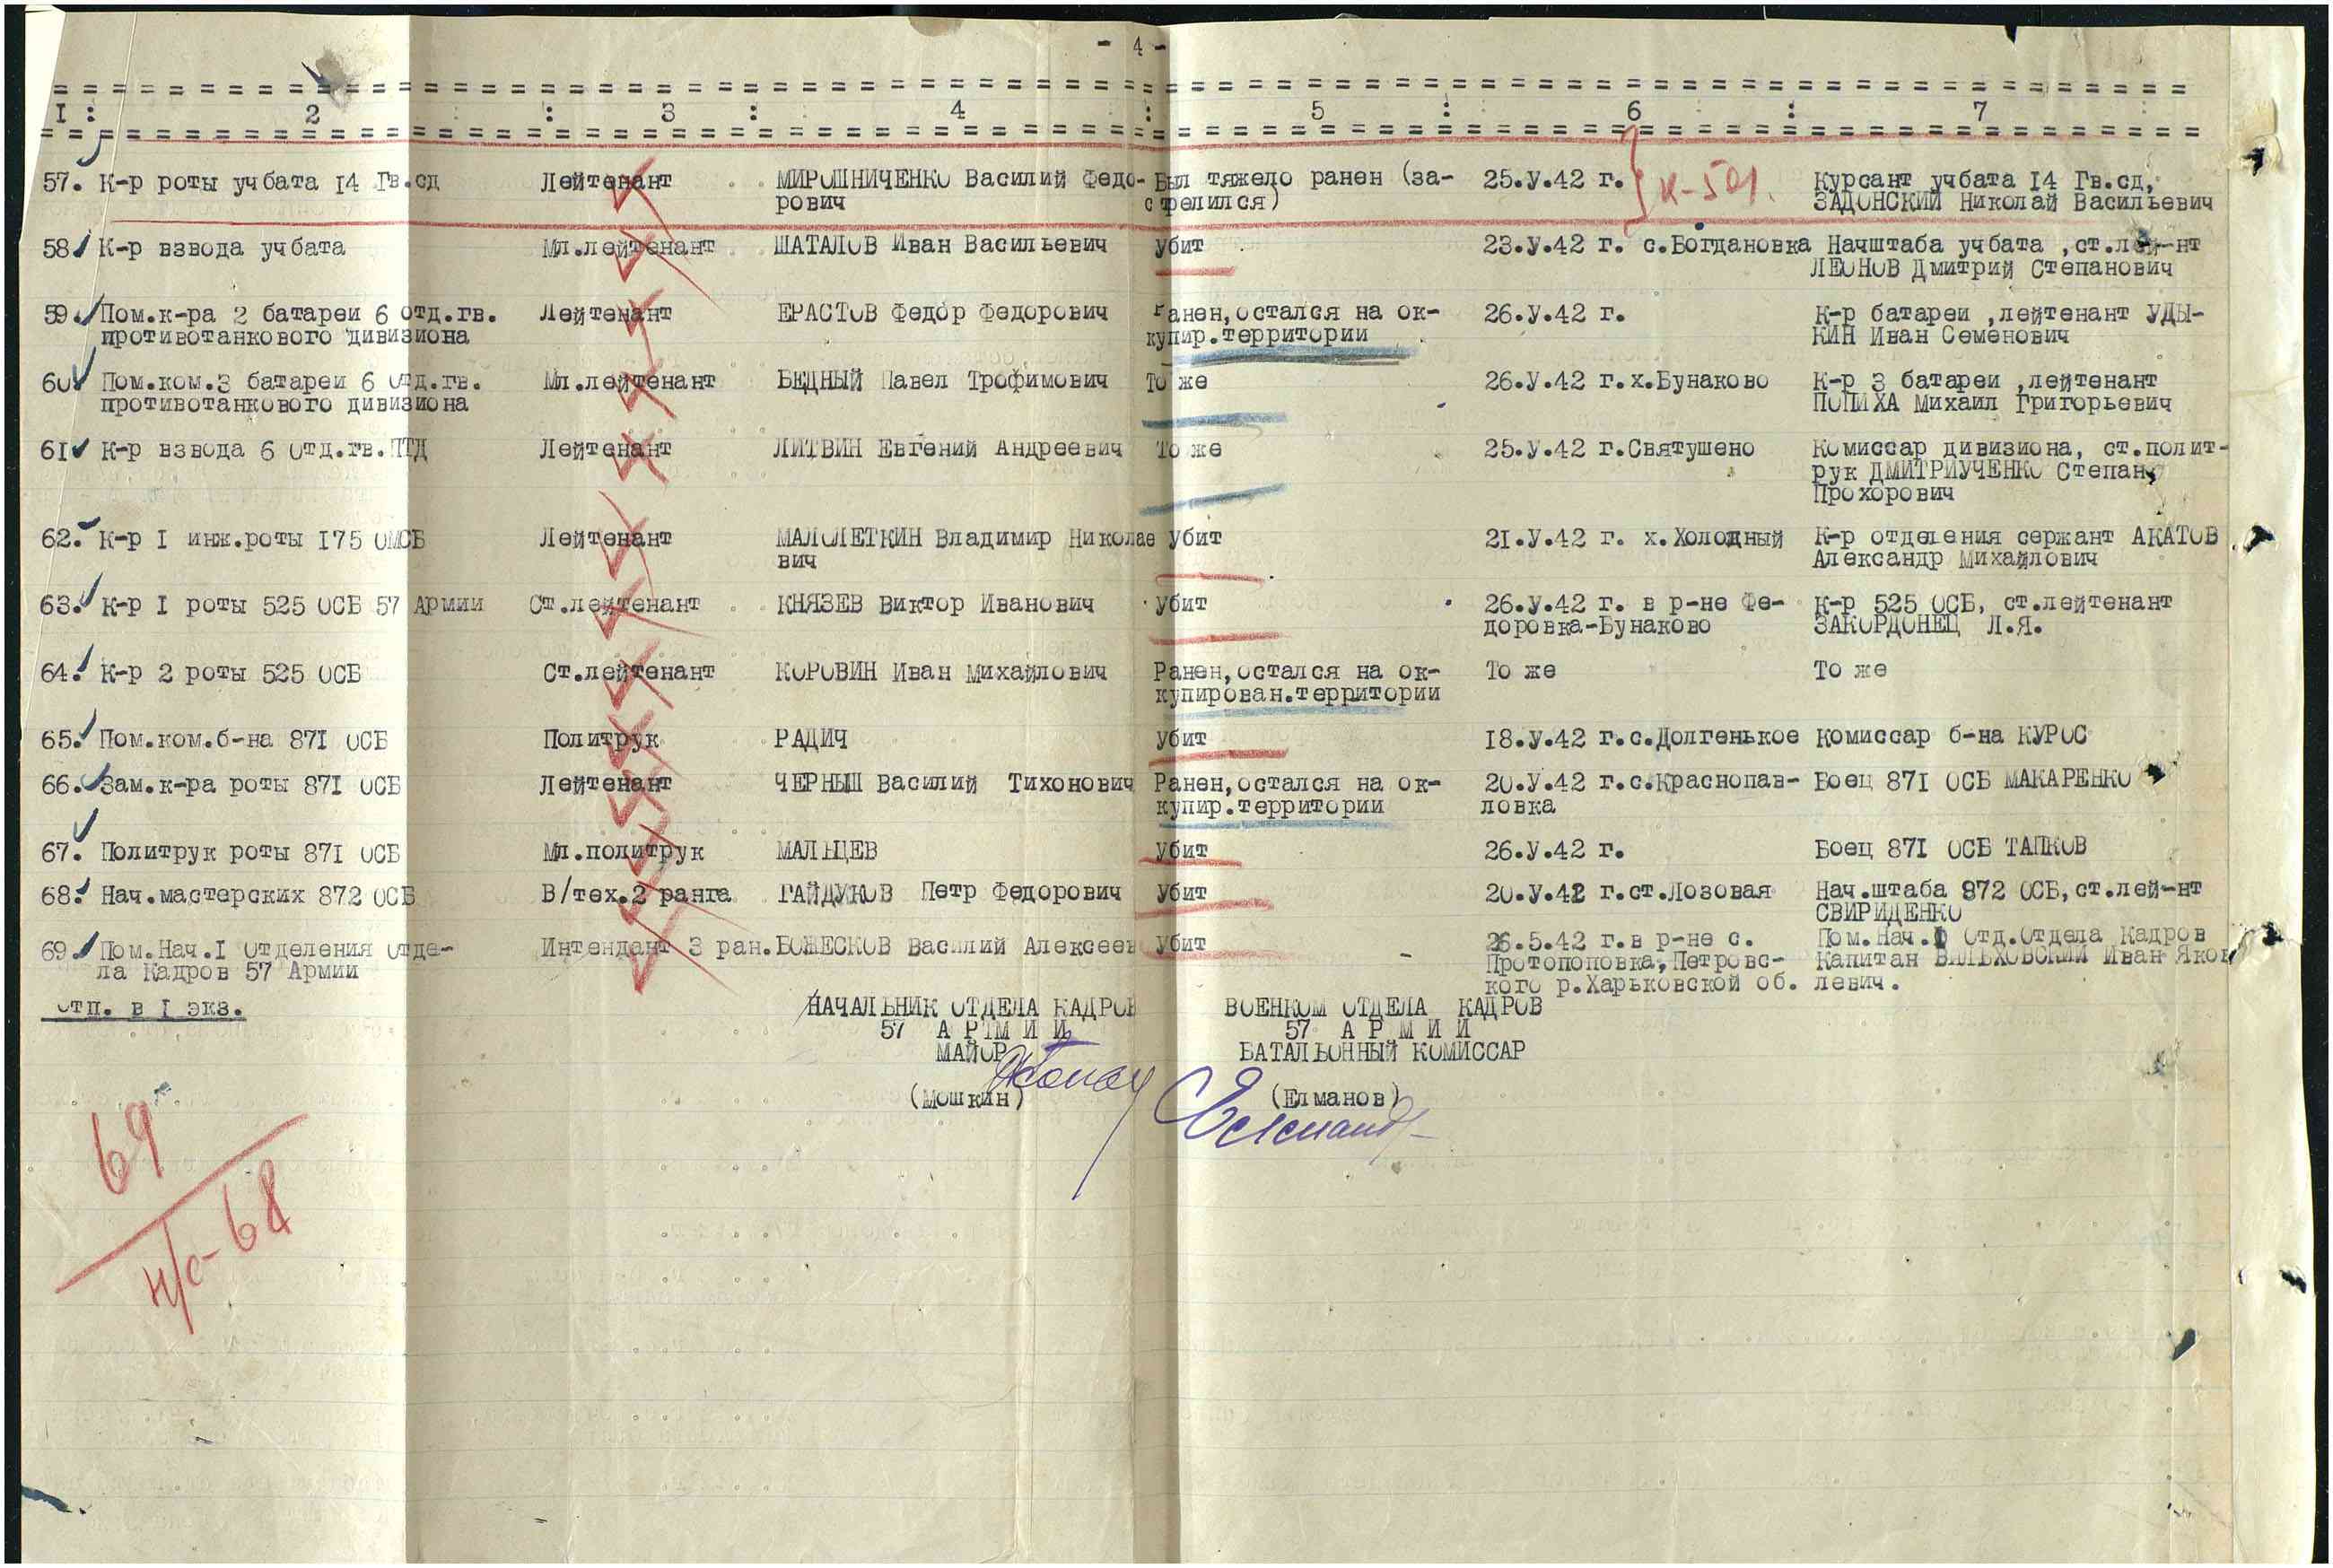 - 4 -
I : 2 : 3 : 4 : 5 : 6 : 7
57. К-р роты учбата I4 Гв.сд Лейтенант МИРОШНИЧЕНКО Василий Федо- Был тяжело ранен (за- 25.У.42 г. К-501. Курсант учбата I4 Гв.сд,
рович стрелился) ЗАДОНСКИЙ Николай Васильевич
58. К-р взвода учбата Мл.лейтенант ШАТАЛОВ Иван Васильевич Убит 23.У.42 г. с.Богдановка Начштаба учбата ,ст.лей-нт
ЛЕОНОВ Дмитрий Степанович
59. Пом.к-ра 2 батареи 6 отд.гв. Лейтенант ЕРАСТОВ Федор Федорович Ранен,остался на ок- 26.У.42 г. К-р батареи ,лейтенант УДЫ-
противотанкового дивизиона купир.территории КИН Иван Семенович
60. Пом.ком.3 батареи 6 отд.гв. Мл.лейтенант БЕДНЫЙ Павел Трофимович То же 26.У.42 г.х.Бунаково К-р 3 батареи ,лейтенант
противотанкового дивизиона ПОПИХА Михаил Григорьевич
61. К-р взвода 6 отд.гв.ПТД Лейтенант ЛИТВИН Евгений Андреевич То же 25.У.42 г.Святушено Комиссар дивизиона, ст.полит-
рук ДМИТРИУЧЕНКО Степан
Прохорович
62. К-р I инж.роты I75 ОМСБ Лейтенант МАЛОЛЕТКИН Владимир Николае Убит 2I.У.42 г. х.Холодный К-р отделения сержант АКАТОВ
вич Александр Михайлович
63. К-р I роты 525 ОСБ 57 Армии Ст.лейтенант КНЯЗЕВ Виктор Иванович Убит 26.У.42 г. в р-не Фе- К-р 525 ОСБ, ст.лейтенант
доровка-Бунаково ЗАКОРДОНЕЦ Л.Я.
64. К-р 2 роты 525 ОСБ Ст.лейтенант КОРОВИН Иван Михайлович Ранен,остался на ок- То же То же
купирован.территории
65. Пом.ком.б-на 87I ОСБ Политрук РАДИЧ Убит I8.У.42 г.с.Долгенькое Комиссар б-на КУРОС
66. Зам.к-ра роты 87I ОСБ Лейтенант ЧЕРНЫШ Василий Тихонович Ранен,остался на ок- 20.У.42 г.с.Краснопав- Боец 87I ОСБ МАКАРЕНКО
купир.территории ловка
67. Политрук роты 87I ОСБ Мл.политрук МАЛЬЦЕВ Убит 26.У.42 г. Боец 87I ОСБ ТАПКОВ
68. Нач.мастерских 872 ОСБ В/тех.2 ранга ГАЙДУКОВ Петр Федорович Убит 20.У.42 г.ст.Лозовая Нач.штаба 872 ОСБ,ст.лей-нт
СВИРИДЕНКО
69. Пом.Нач.I Отделения Отде- Интендант 3 ран. БОЖЕСКОВ Василий Алексеев Убит 26.5.42 г.в р-не с. Пом.Нач. Отд.Отдела Кадров
ла Кадров 57 Армии Протопоповка,Петровс- Капитан ВИЛЬХОВСКИЙ Иван Яков
кого р.Харьковской об. левич.
Отп. в I экз. НАЧАЛЬНИК ОТДЕЛА КАДРОВ ВОЕНКОМ ОТДЕЛА КАДРОВ
57 А Р М И И 57 А Р М И И
МАЙОР БАТАЛЬОННЫЙ КОМИССАР
(Мошкин) (Елманов)
69
н/с-68